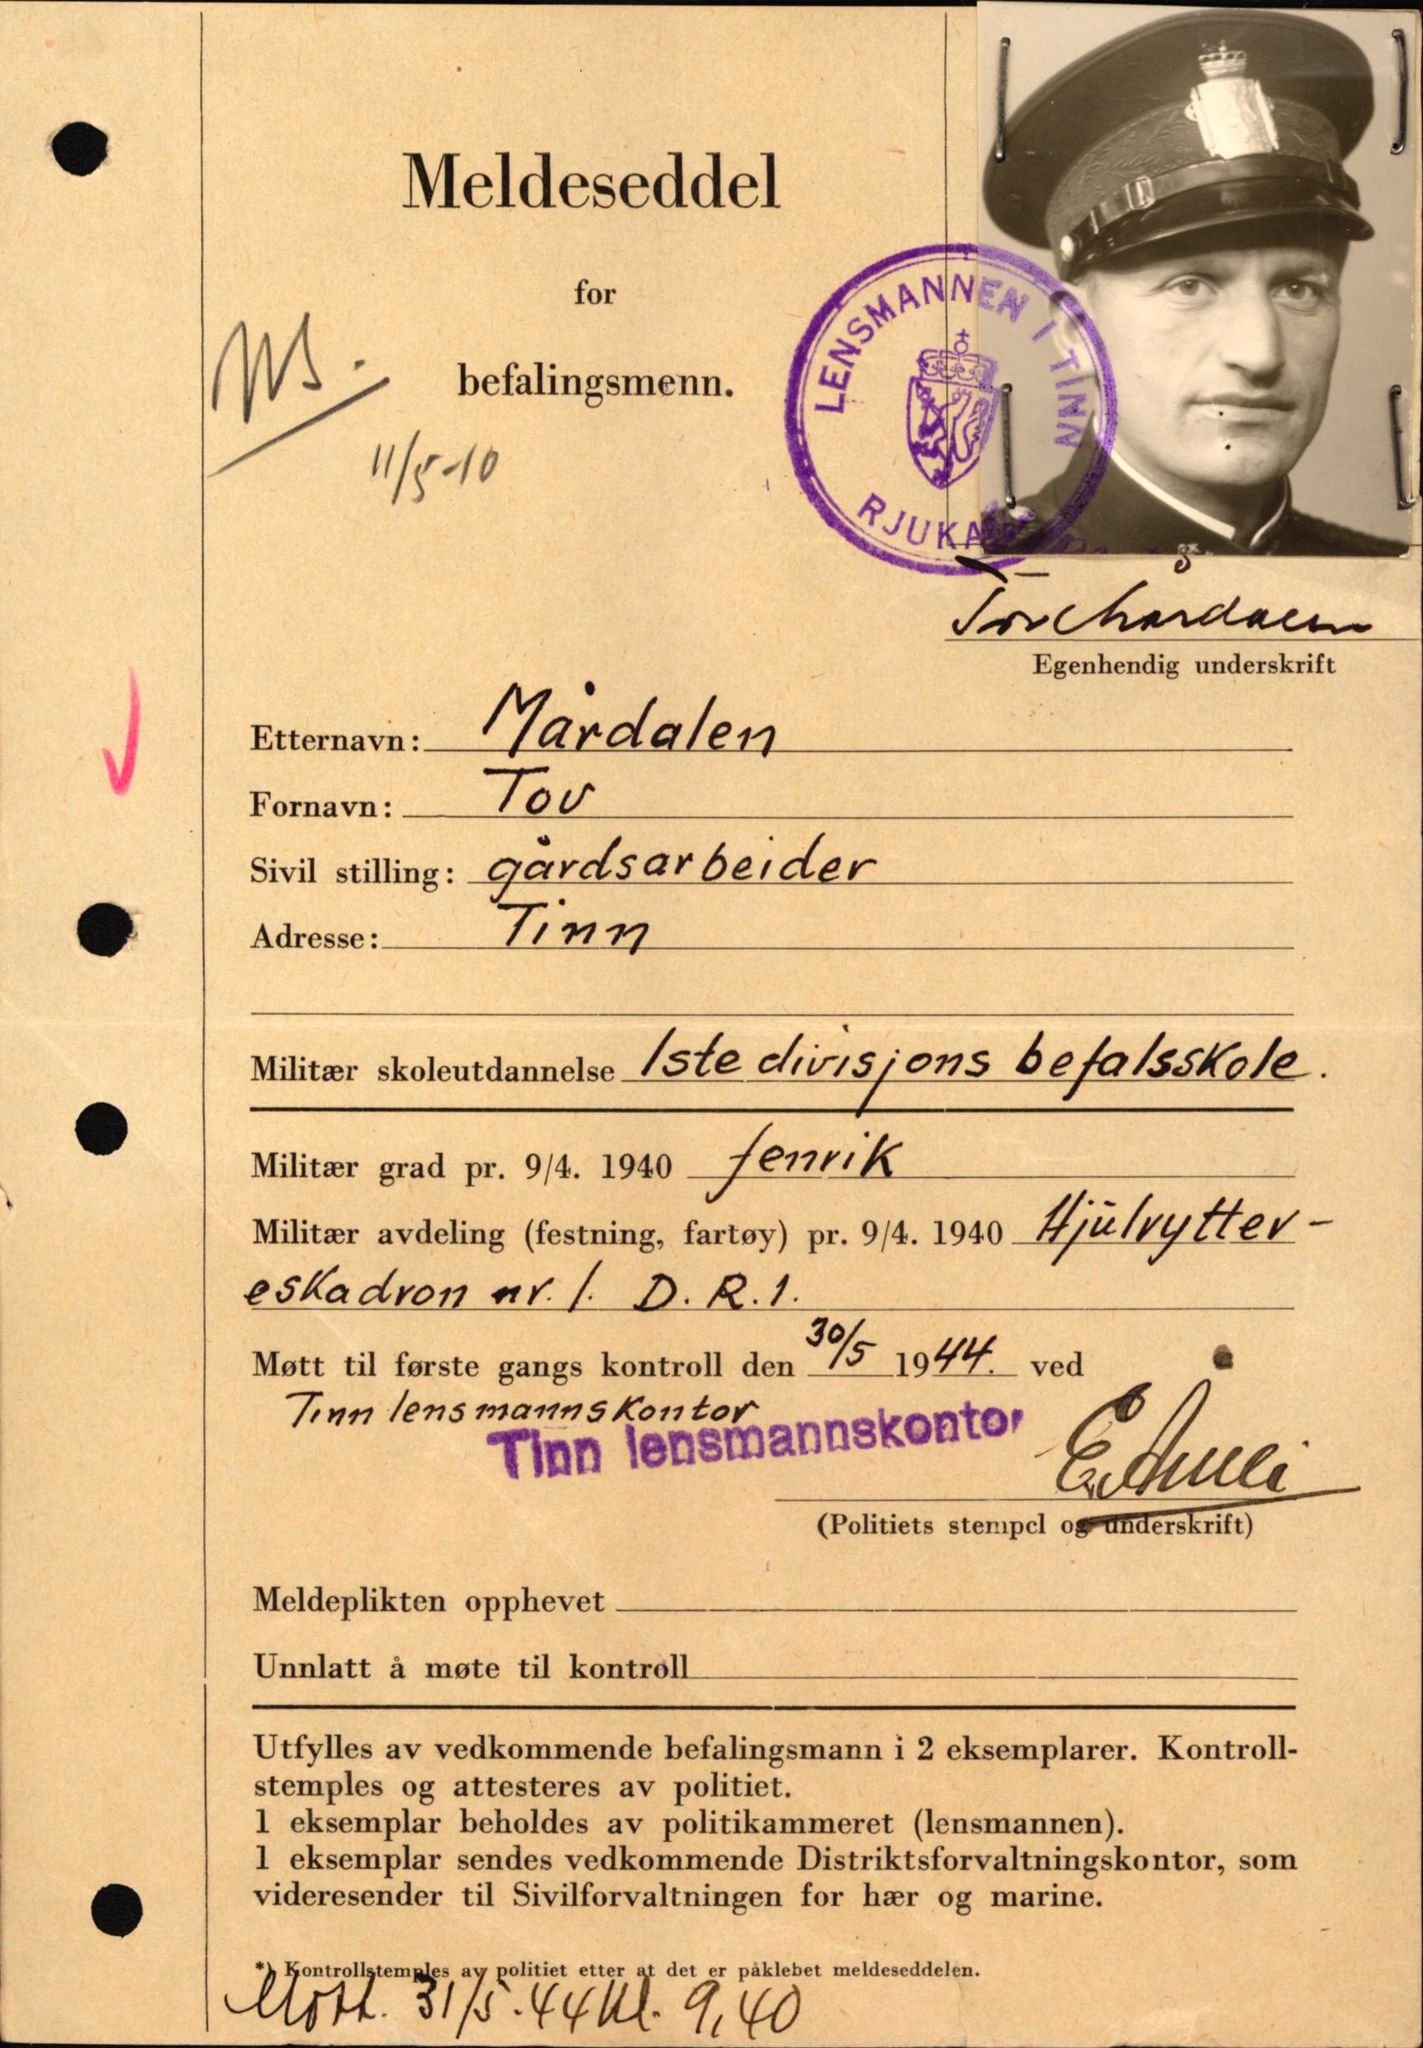 Meldeseddel
for
befalingsmenn.
11/5-10
LENSMANNEN I TINN
RJUKAN
Tov Mårdalen
Egenhendig underskrift
Etternavn: Mårdalen
Fornavn: Tov
Sivil stilling: gårdsarbeider
Adresse: Tinn
Militær skoleutdannelse 1ste divisjons befalsskole.
Militær grad pr. 9/4. 1940 fenrik
Militær avdeling (festning, fartøy) pr. 9/4. 1940 Hjulrytter-
eskadron nr. 1. D. R. 1.
Møtt til første gangs kontroll den 30/5 1944. ved
Tinn lensmannskontor
Tinn lensmannskontor
(Politiets stempel og underskrift)
Meldeplikten opphevet
Unnlatt å møte til kontroll
Utfylles av vedkommende befalingsmann i 2 eksemplarer. Kontroll-
stemples og attesteres av politiet.
1 eksemplar beholdes av politikammeret (lensmannen).
1 eksemplar sendes vedkommende Distriktsforvaltningskontor, som
videresender til Sivilforvaltningen for hær og marine.
*) Kontrollstemples av politiet etter at det er påklebet meldeseddelen.
Mott. 31/5.44 kl. 9,40